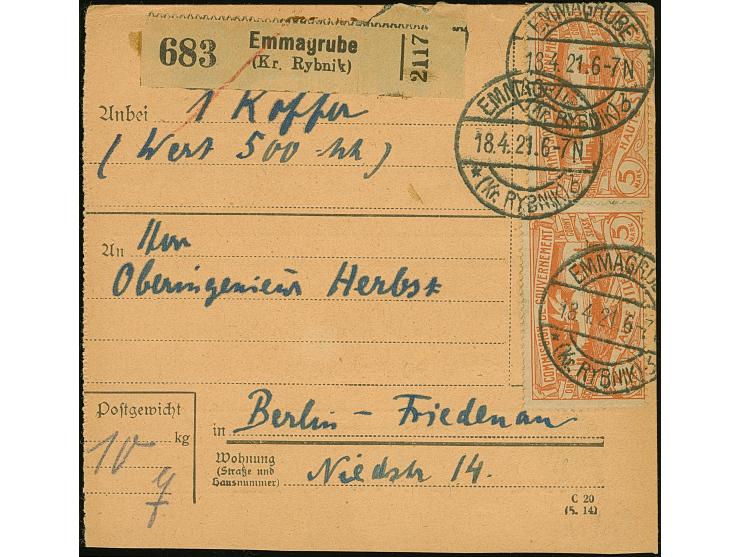 683 Emmagrube
(Kr. Rybnik) 2117
Anbei 1 Koffer
(Wert 500 Mk)
An Herrn
Oberingenieur Herbst
Postgewicht
10 kg
in Berlin - Friedenau
Wohnung
(Straße und
Hausnummer) Niedstr 14.
C 20
(5. 14)
EMMAGRUBE
18.4.21.6-7N
(Kr. RYBNIK) b
EMMAGRUBE
18.4.21.6-7N
* (Kr. RYBNIK) b
EMMAGRUBE
18.4.21.6-7
* (Kr. RYBNIK) b
5
5
COMMISSION DE GOUVERNEMENT